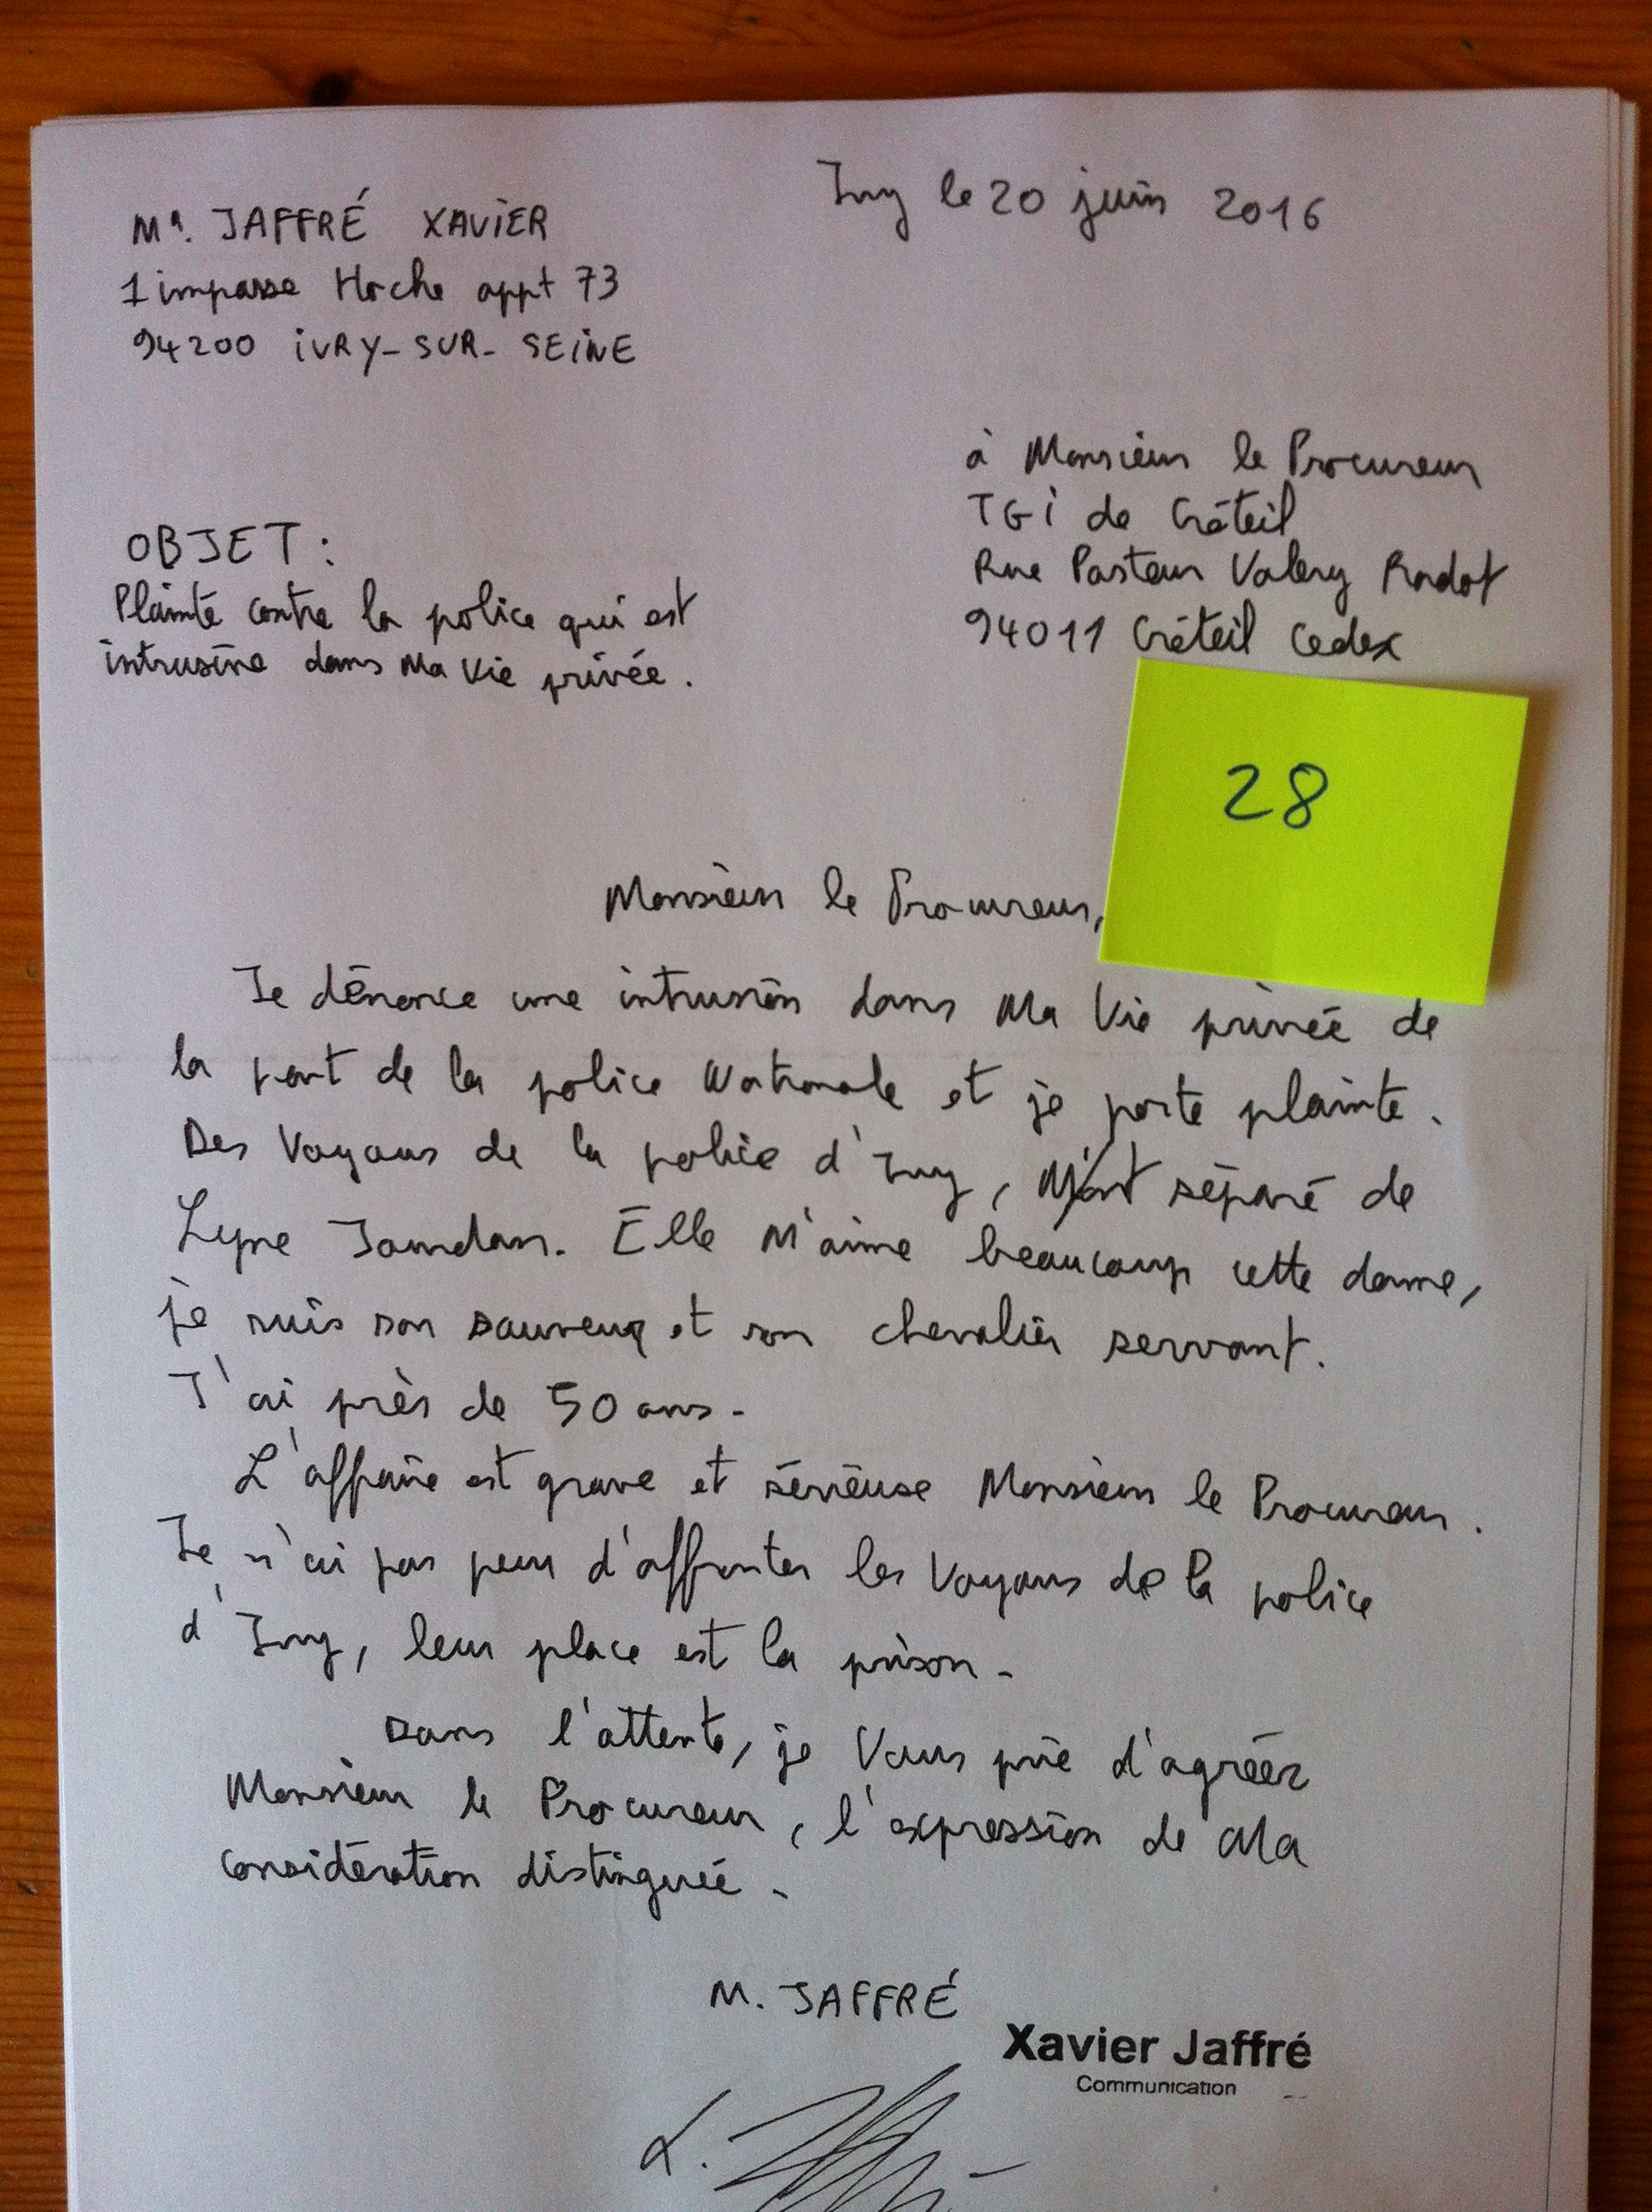 Ivry le 20 juin 2016
Mr. JAFFRÉ XAVIER
1 impasse Hoche appt 73
94200 IVRY-SUR-SEINE
à Monsieur le Procureur
TGI de Créteil
Rue Pasteur Valery Radot
94011 Créteil Cedex
OBJET :
Plainte contre la police qui est
intrusive dans Ma Vie privée.
28
Monsieur le Procureur,
Je dénonce une intrusion dans Ma Vie privée de
la part de la police Nationale et je porte plainte.
Des Voyous de la police d'Ivry, M'ont séparé de
Lyne. Elle M'aime beaucoup cette dame,
je suis son sauveur et son chevalier servant.
J'ai près de 50 ans.
L'affaire est grave et sérieuse Monsieur le Procureur.
Je n'ai pas peur d'affronter les Voyous de la police
d'Ivry, leur place est la prison.
Dans l'attente, je Vous prie d'agréer
Monsieur le Procureur, l'expression de Ma
Considération distinguée.
M. JAFFRÉ
Xavier Jaffré
Communication